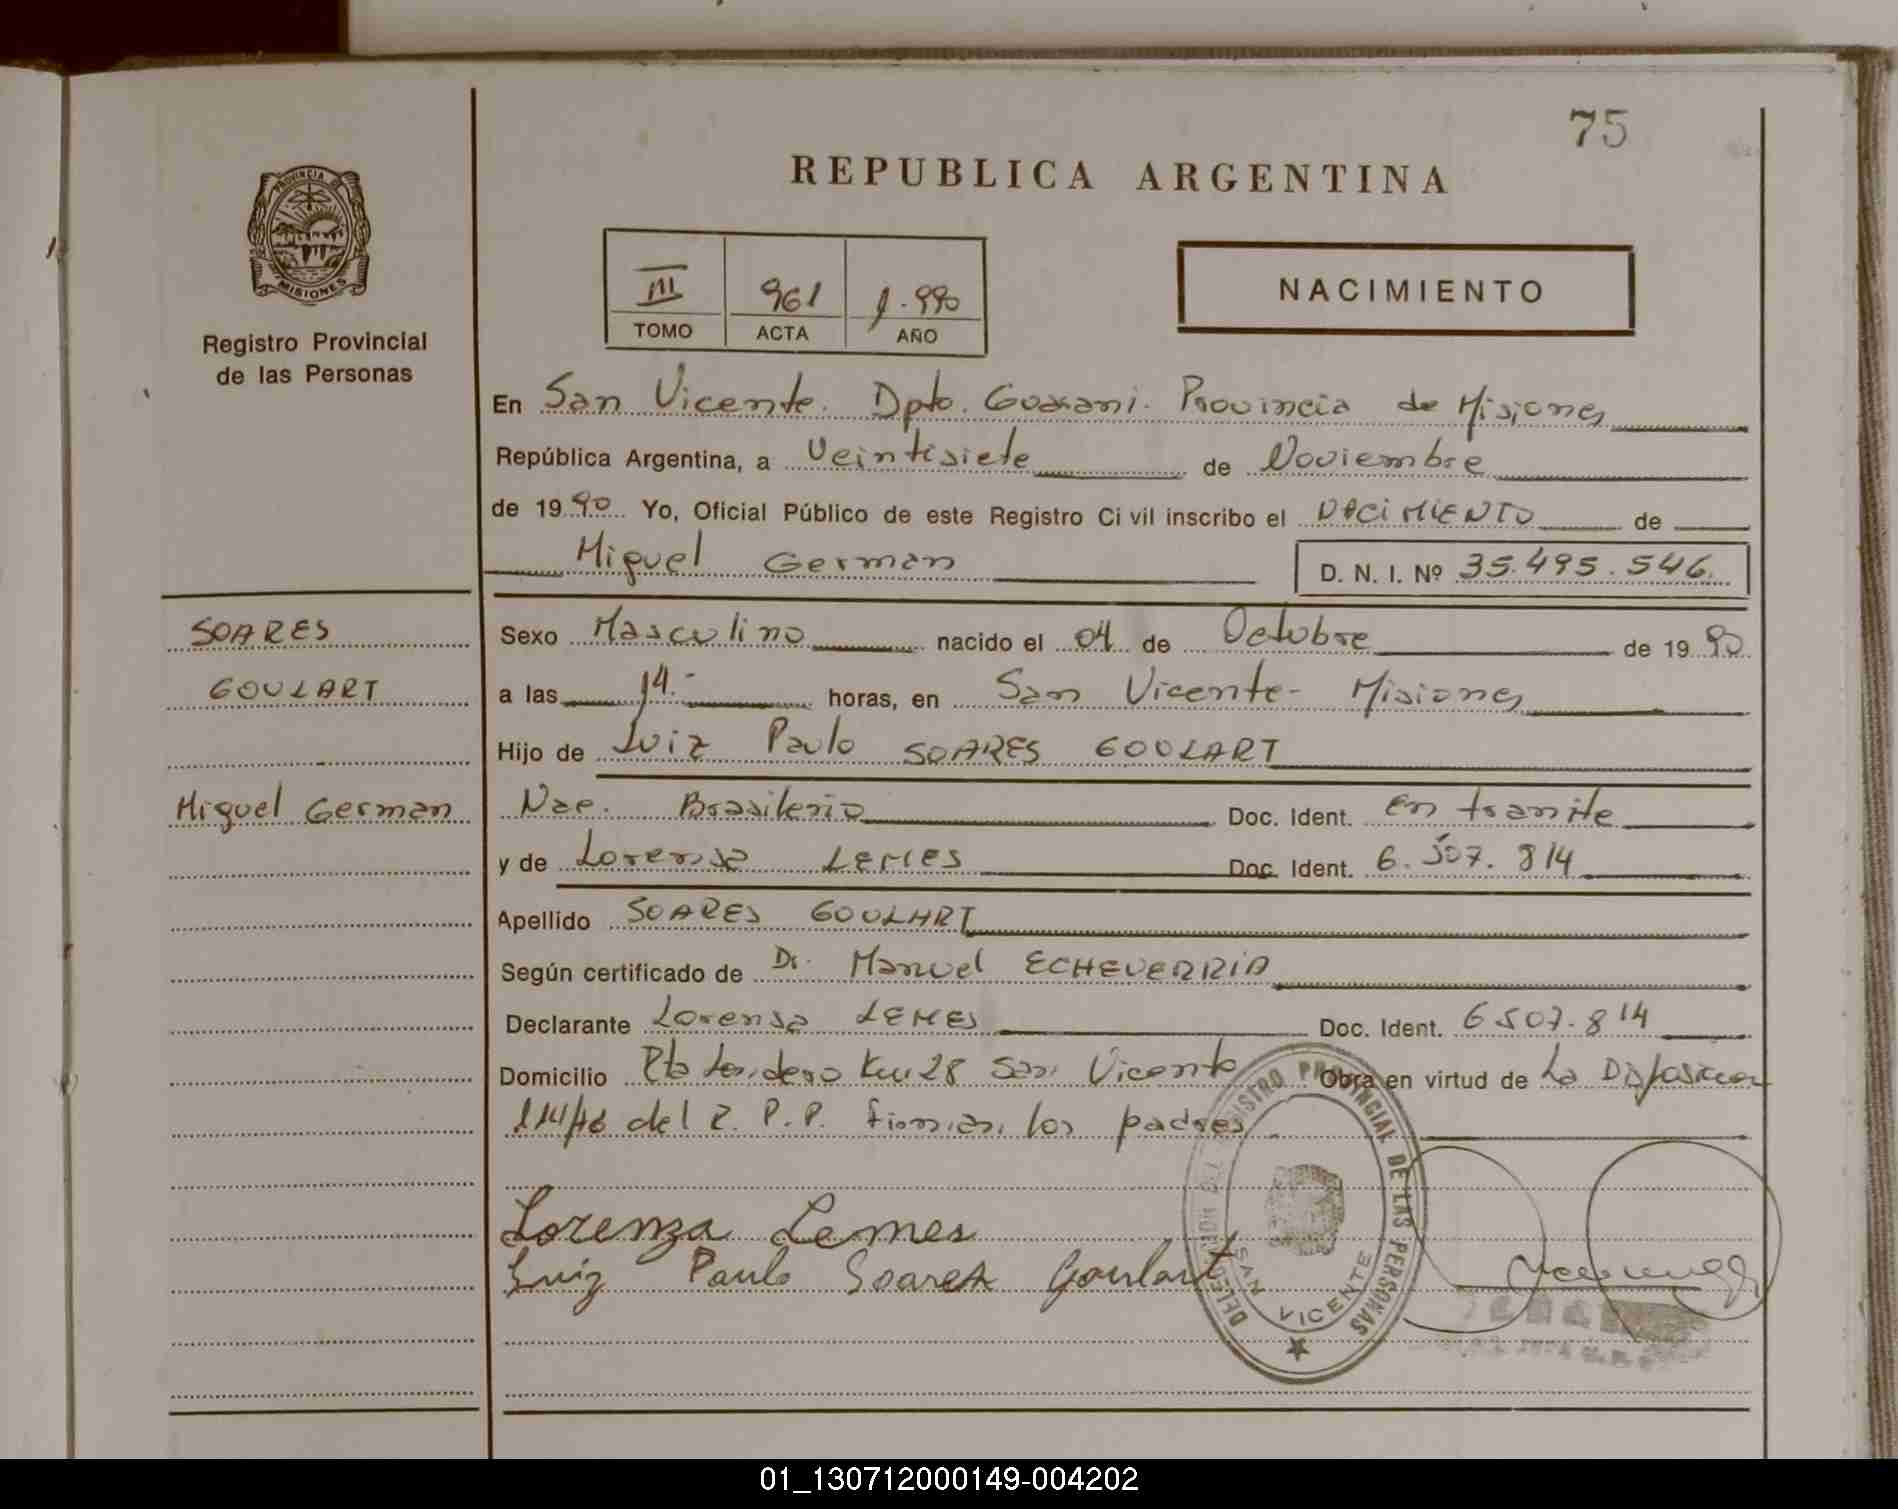 75
REPUBLICA ARGENTINA
PROVINCIA DE
MISIONES
Registro Provincial
de las Personas
III 961 1.990
TOMO ACTA AÑO
NACIMIENTO
En San Vicente. Dpto. Guarani. Provincia de Misiones
República Argentina, a Veintisiete de Noviembre
de 1990 Yo, Oficial Público de este Registro Civil inscribo el NACIMIENTO de
Miguel German D. N. I. Nº 35.495.546.
SOARES
GOULART
Miguel German
Sexo Masculino nacido el 04 de Octubre de 1990
a las 14.- horas, en San Vicente- Misiones
Hijo de Luiz Paulo SOARES GOULART
Nac. Brasilerio Doc. Ident. En tramite
y de Lorensa LEMES Doc. Ident. 6.507.814
Apellido SOARES GOULART
Según certificado de Dr. Manuel ECHEVERRIA
Declarante Lorensa LEMES Doc. Ident. 6507.814
Domicilio Km 28 San Vicente Obra en virtud de La Disposicion
del R.P.P. firman los padres
Lorenza Lemes
Luiz Paulo Soares Goulart
DELEGACION DEL REGISTRO PROVINCIAL DE LAS PERSONAS
SAN VICENTE
01_130712000149-004202